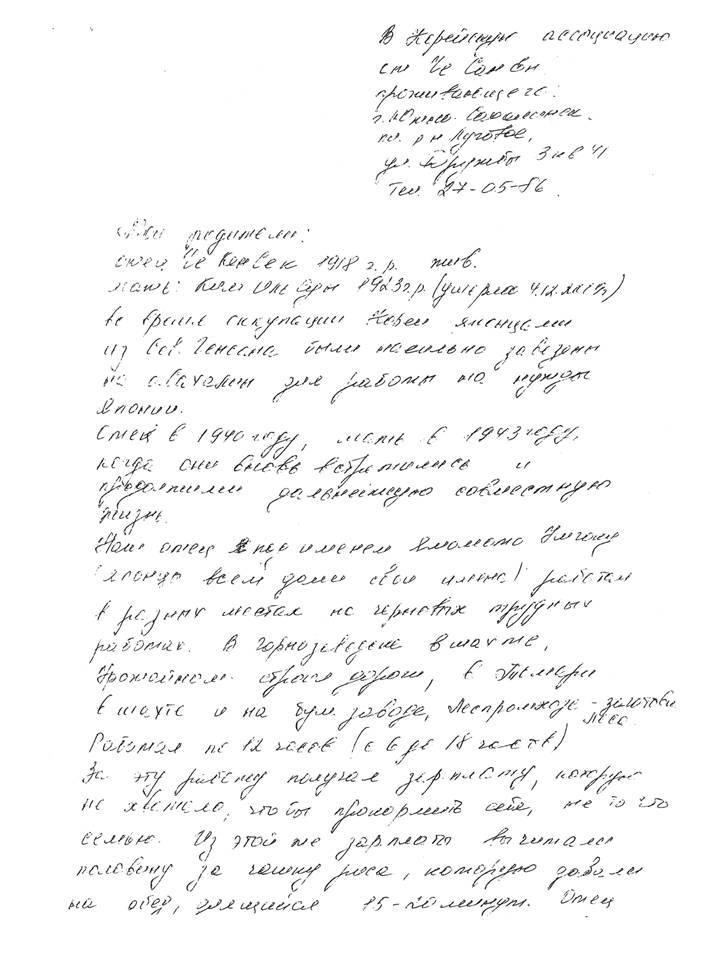 В Корейскую ассоциацию
от Че Сан Ен
проживающего:
г. Южно-Сахалинск.
пл. р-н Луговое,
ул. Дружбы 3 кв 41
Тел. 27-05-86.
Мои родители:
отец Че 1918 г.р. жив.
мать: 1923 г.р. (умерла 4.12.
во время оккупации Кореи японцами
из были насильно завезены
на о. Сахалин для работы на нужды
Японии.
Отец в 1940 году, мать в 1943 году,
когда они вновь встретились и
продолжили дальнейшую совместную
жизнь.
Наш отец под именем Ямомото
(японцы всем дали свои имена) работал
в разных местах на черновых трудных
работах. В Горнозаводске в шахте,
Урожайном строил дороги, в Томари
в шахте и на бум. заводе, Леспромхозе - заготовка
леса.
Работал по 12 часов (с 6 до 18 часов)
За эту работу получал зарплату, которую
не хватало, чтобы прокормить себя, не то что
семью. Из этой же зарплаты вычитали
половину за чашку риса, которую давали
на обед, длящийся 15-20 минут. Отец